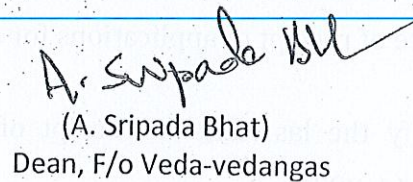 A. Sripada Bhat
(A. Sripada Bhat)
Dean, F/o Veda-vedangas